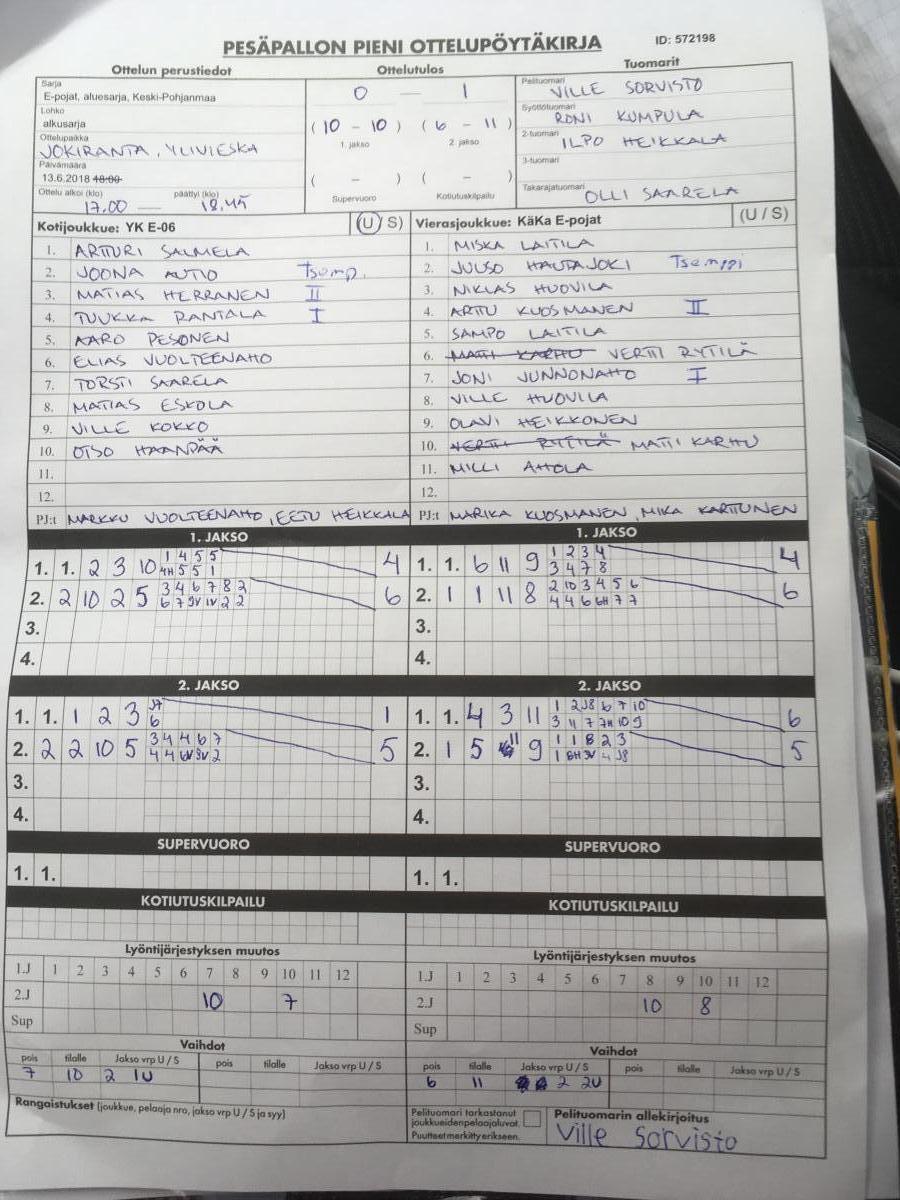 PESÄPALLON PIENI OTTELUPÖYTÄKIRJA ID: 572198
Ottelun perustiedot Ottelutulos Tuomarit
Sarja
E-pojat, aluesarja, Keski-Pohjanmaa
Lohko
alkusarja
Ottelupaikka
JOKIRANTA, YLIVIESKA
Päivämäärä
13.6.2018 18:00
Ottelu alkoi (klo) päättyi (klo)
17.00 — 18.45
0 — 1
(10 - 10) (6 - 11)
1. jakso 2. jakso
( - ) ( - )
Supervuoro Kotiutuskilpailu
Pelituomari
VILLE SORVISTO
Syöttötuomari
RONI KUMPULA
2-tuomari
ILPO HEIKKALA
3-tuomari
Takarajatuomari
OLLI SAARELA
Kotijoukkue: YK E-06 (U / S)
1. ARTTURI SALMELA
2. JOONA AUTIO Tsemp.
3. MATIAS HERRANEN II
4. TUUKKA RANTALA I
5. AARO PESONEN
6. ELIAS VUOLTEENAHO
7. TORSTI SAARELA
8. MATIAS ESKOLA
9. VILLE KOKKO
10. OTSO HAANPÄÄ
11.
12.
PJ:t MARKKU VUOLTEENAHO, EETU HEIKKALA
Vierasjoukkue: KäKa E-pojat (U / S)
1. MISKA LAITILA
2. JUUSO HAUTAJOKI Tsemppi
3. NIKLAS HUOVILA
4. ARTTU KUOSMANEN II
5. SAMPO LAITILA
6. MATTI KARHU VERTTI RYTILÄ
7. JONI JUNNONAHO I
8. VILLE HUOVILA
9. OLAVI HEIKKONEN
10. VERTTI RYTILÄ MATTI KARHU
11. MILLI AHOLA
12.
PJ:t MARIKA KUOSMANEN, MIKA KARTTUNEN
1. JAKSO
1. 1. 2 3 10 1 4 5 5 4
4H 5 5 1
2. 2 10 2 5 3 4 6 7 8 2 6
6 7 3V 1V 2 2
3.
4.
1. JAKSO
1. 1. 6 11 9 1 2 3 4 4
3 4 7 8
2. 1 1 11 8 2 10 3 4 5 6 6
4 4 6 6H 7 7
3.
4.
2. JAKSO
1. 1. 1 2 3 J7 1
6
2. 2 2 10 5 3 4 4 6 7 5
4 4 6V 3V 2
3.
4.
2. JAKSO
1. 1. 4 3 11 1 2 J8 6 7 10 6
3 11 7 7H 10 9
2. 1 5 11 9 1 1 8 2 3 5
1 8H 3V 4 J8
3.
4.
SUPERVUORO
1. 1.
SUPERVUORO
1. 1.
KOTIUTUSKILPAILU
KOTIUTUSKILPAILU
Lyöntijärjestyksen muutos
1.J 1 2 3 4 5 6 7 8 9 10 11 12
2.J 10 7
Sup
Lyöntijärjestyksen muutos
1.J 1 2 3 4 5 6 7 8 9 10 11 12
2.J 10 8
Sup
Vaihdot
pois tilalle Jakso vrp U / S pois tilalle Jakso vrp U / S
7 10 2 1U
Vaihdot
pois tilalle Jakso vrp U / S pois tilalle Jakso vrp U / S
6 11 2 2U
Rangaistukset (joukkue, pelaaja nro, jakso vrp U / S ja syy)
Pelituomari tarkastanut
joukkueiden pelaajaluvat.
Puutteet merkitty erikseen.
Pelituomarin allekirjoitus
Ville Sorvisto